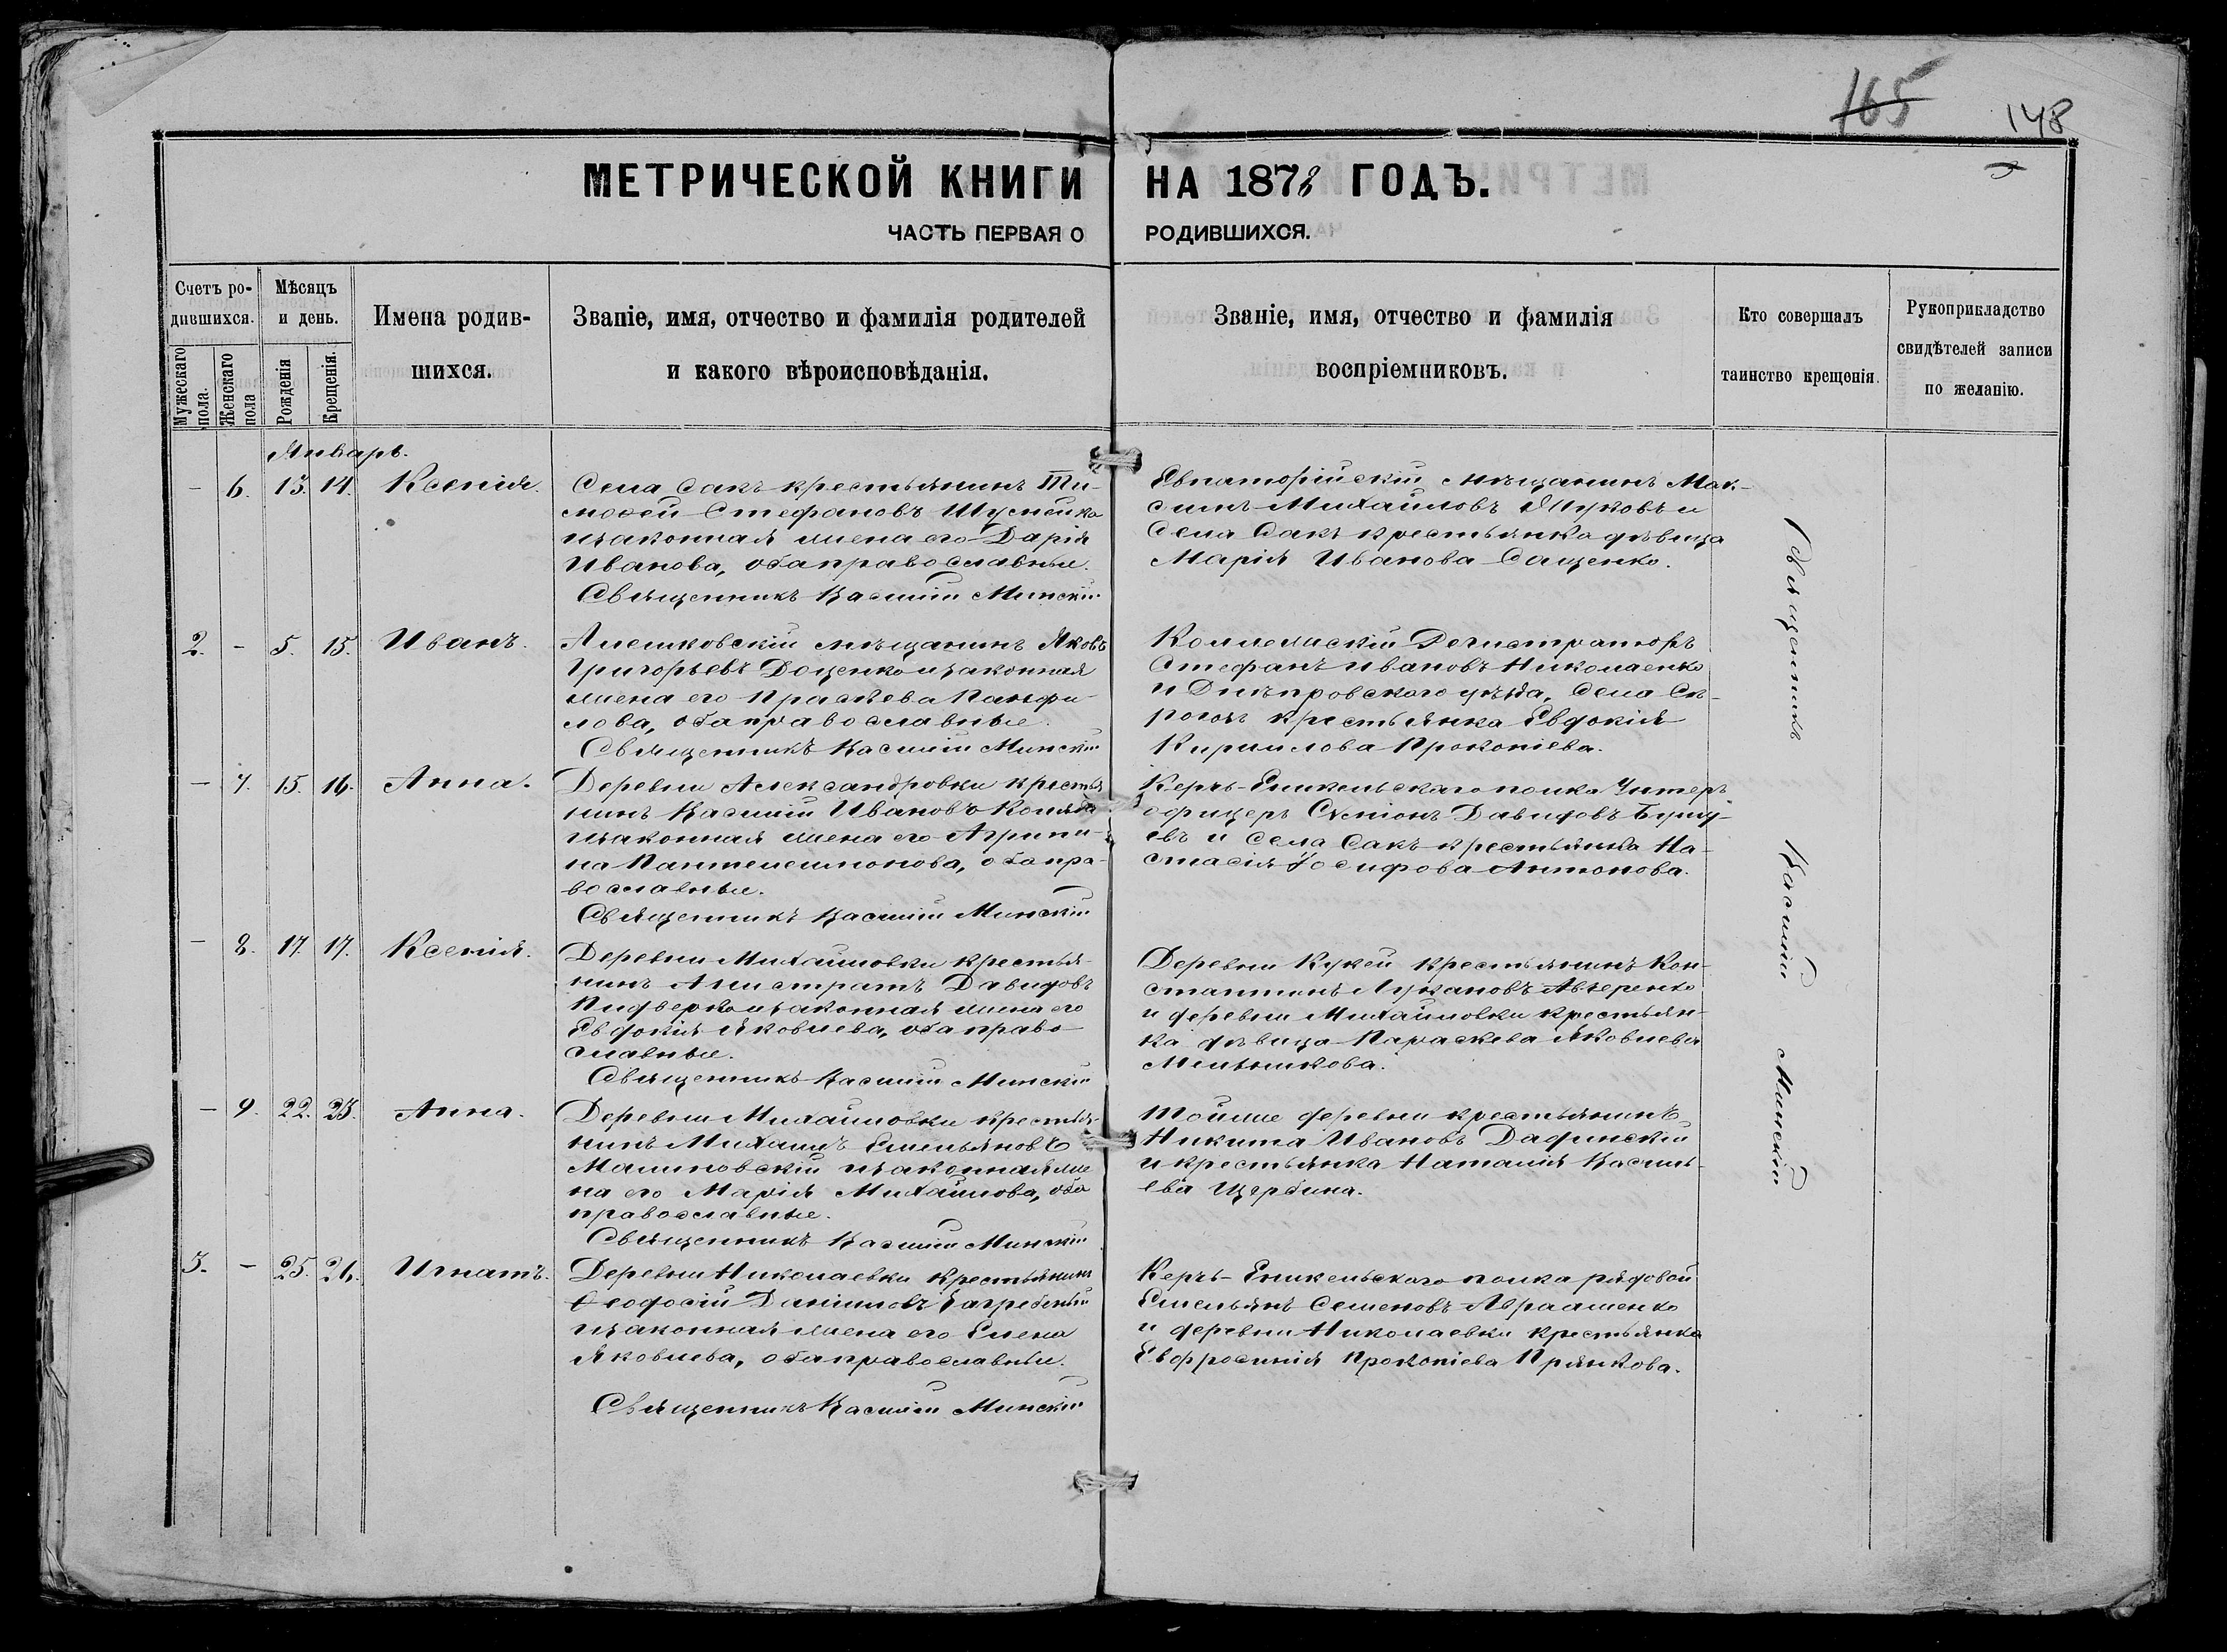 165 148
МЕТРИЧЕСКОЙ КНИГИ НА 1878 ГОДЪ.
ЧАСТЬ ПЕРВАЯ О РОДИВШИХСЯ.
Счетъ ро-
дившихся.
Мужескаго пола.
Женскаго пола
Мѣсяцъ
и день.
Рожденія
Крещенія.
Имена родив-
шихся.
Званіе, имя, отчество и фамилія родителей
и какого вѣроисповѣданія.
Званіе, имя, отчество и фамилія
воспріемниковъ.
Кто совершалъ
таинство крещенія.
Рукоприкладство
свидѣтелей записи
по желанію.
Январь.
- 6. 13. 14. Ксенія.
Села Сакъ крестьянинъ Ти-
мофей Стефановъ
и законная жена его Дарія
Иванова, оба православные.
Священникъ Василій Минскій
Евпаторійскій мѣщанинъ Мак-
симъ Михайловъ и
Села Сакъ крестьянка дѣвица
Марія Иванова Саценко.
2. - 5. 15. Иванъ.
Алешковскій мѣщанинъ Яковъ
Григорьевъ Доценко и законная
жена его Панфи-
лова, оба православные.
Священникъ Василій Минскій
Коллежскій Регистраторъ
Стефанъ Ивановъ Николаенко
и Днѣпровского уѣзда, Села Ск-
рогозъ крестьянка Евдокія
Кирилова Прокопіева.
- 7. 15. 16. Анна.
Деревни Александровки крестья
нинъ Василій Ивановъ
и законная жена его Агрипи-
на Пантелеимонова, оба пра-
вославные.
Священникъ Василій Минскій
Керчь-Еникельскаго полка Унтеръ
офицеръ Давидовъ
и Села Сакъ крестьянка На-
стасія Іосифова Антонова.
- 8. 17. 17. Ксенія.
Деревни Михайловки крестья-
нинъ Давидовъ
и законная жена его
Евдокія Яковлева, оба право-
славные.
Священникъ Василій Минскій
Деревни крестьянинъ Кон-
стантинъ
и деревни Михайловки крестьян-
ка дѣвица Параскева Яковлева
Мельникова.
- 9. 22. 23. Анна.
Деревни Михайловки крестья-
нинъ Михаилъ Емельяновъ
Малиновскій и законная же
на его Марія Михайлова, оба
православные.
Священникъ Василій Минскій
Той же деревни крестьянинъ
Никита Ивановъ
и крестьянка Наталія Василь-
ева Щербина.
3. - 25. 26. Игнатъ.
Деревни Николаевки крестьянинъ
Ѳеодосій Даніиловъ Загребеный
и законная жена его Елена
Яковлева, оба православные.
Священникъ Василій Минскій
Керчь-Еникельскаго полка рядовой
Емельянъ Семеновъ Авраменко
и деревни Николаевки крестьянка
Евфросинія Прокопіева Прянкова.
Священникъ Василій Минскій